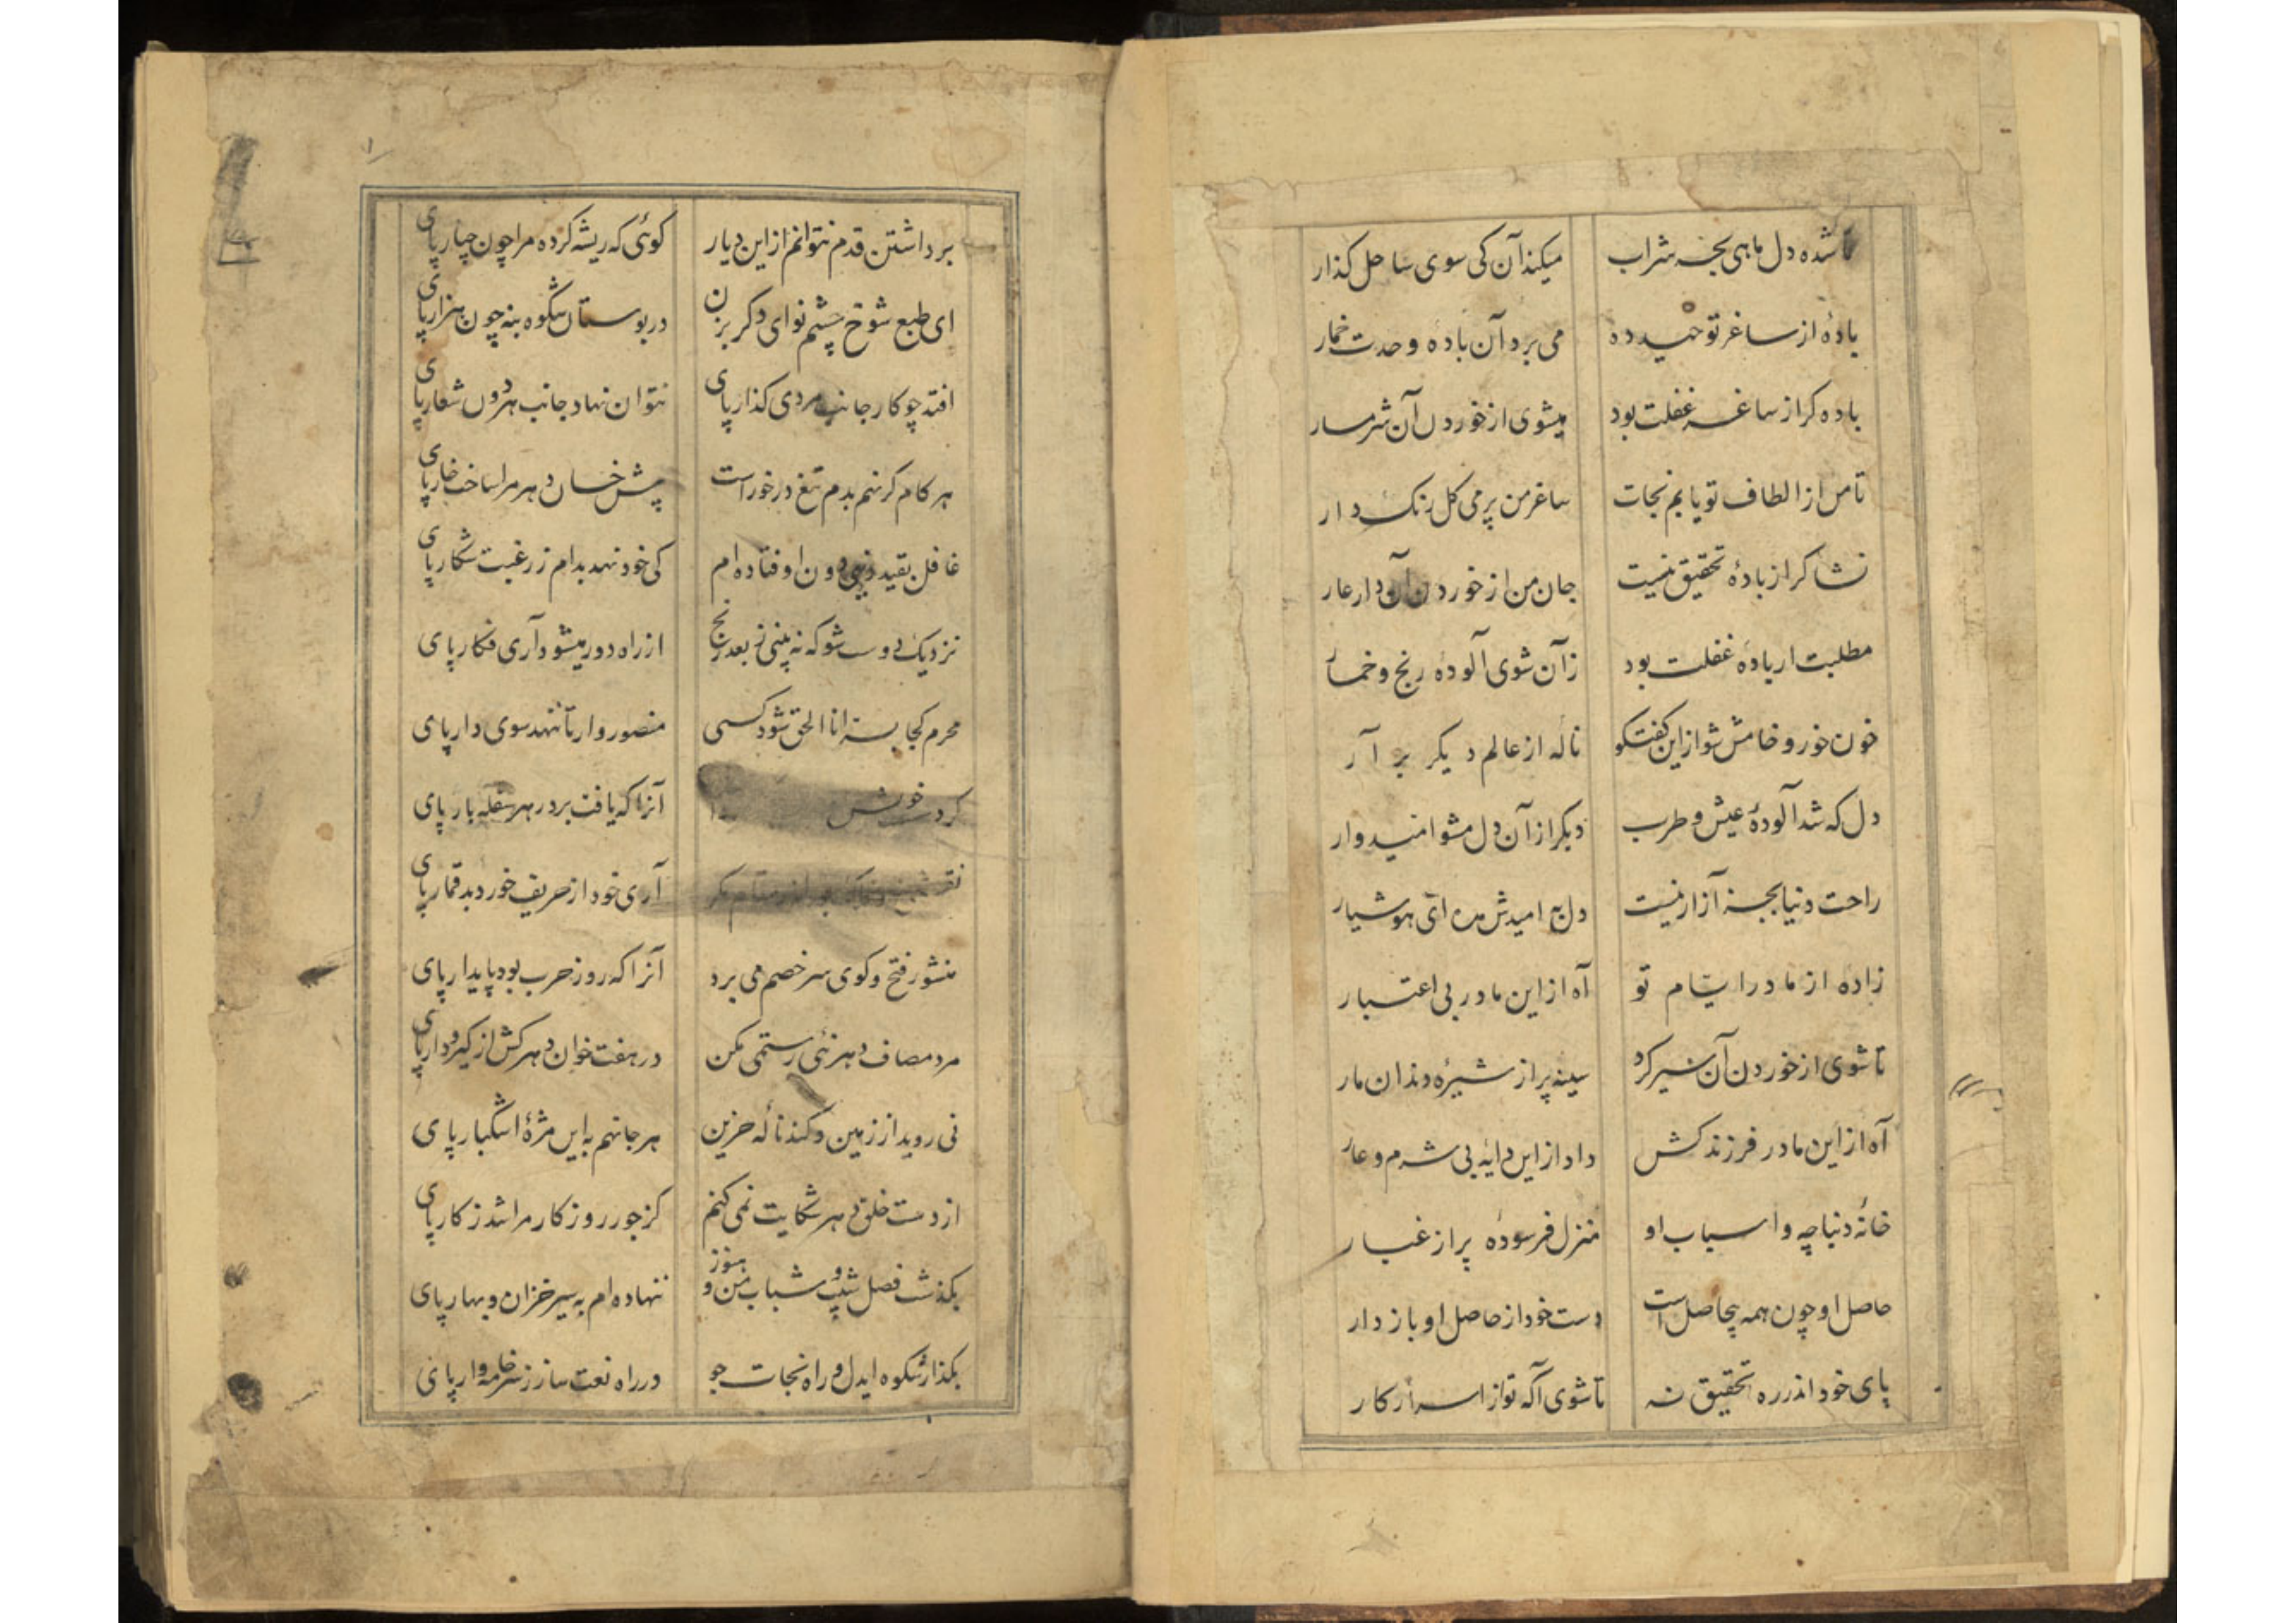 تا شده دل ماهی بحر شراب میکند آن کی سوی ساحل کذار
بادهٔ از ساغر توحید ده می برد آن بادهٔ وحدت خمار
باده کر از ساغر غفلت بود میشوی از خوردن آن شرمسار
تا من از الطاف تو یابم نجات ساغر من پر می کل رنک دار
نشا کر از بادهٔ تحقیق نیست جان من از خوردن آن دار عار
مطلبت ار بادهٔ غفلت بود زآن شوی آلودهٔ رنج و خمار
خون خور و خامش شو از این کفتکو نالهٔ از عالم دیکر بر آر
دل که شد آلودهٔ عیش و طرب دیکر از آن دل مشو امیدوار
راحت دنیا بجز آزار نیست دل به امیدش مده ای هوشیار
زاده از مادر ایام تو آه از این مادر بی اعتبار
تا شوی از خوردن آن شیر کرد سینه پر از شیرهٔ دندان مار
آه از این مادر فرزند کش داد از این دایه بی شرم و عار
خانهٔ دنیا چه و اسباب او منزل فرسودهٔ پر از غبار
حاصل او چون همه بیحاصل است دست خود از حاصل او باز دار
پای خود اندر ره تحقیق نه تا شوی آکه تو از اسرار کار
۱
برداشتن قدم نتوانم از این دیار کوئی که ریشه کرده مرا چون چنار پای
ای طبع شوخ چشم نوای دکر بزن در بوستان شکوه بنه چون هزار پای
افتد چو کار جانب مردی کذار پای نتوان نهاد جانب هر دون شعار پای
هر کام کر نهم بدم تیغ درخور است پیش خسان دهر مرا ساخت خار پای
غافل بقید دنیی دون اوفتاده ام کی خود نهد بدام ز رغبت شکار پای
نزدیک دوست شو که نه بینی ز بعد رنج از راه دور میشود آری فکار پای
محرم کجا بسرّ انا الحق شود کسی منصور وار تا ننهد سوی دار پای
کرد خویش آنرا که یافت بر در هر سفله بار پای
آری خود از حریف خورد بد قمار پای
منشور فتح و کوی سر خصم می برد آنرا که روز حرب بود پایدار پای
مرد مصاف دهر نئی رستمی مکن در هفت خوان دهر کش از کیر و دار پای
نی روید از زمین و کند نالهٔ حزین هر جا نهم به این مژهٔ اشکبار پای
از دست خلق دهر شکایت نمی کنم کز جور روزکار مرا شد ز کار پای
بکذشت فصل شیب و شباب من و هنوز ننهاده ام به سیر خزان و بهار پای
بکذار شکوه ایدل و راه نجات جو در راه نعت ساز ز سر خامه وار پای